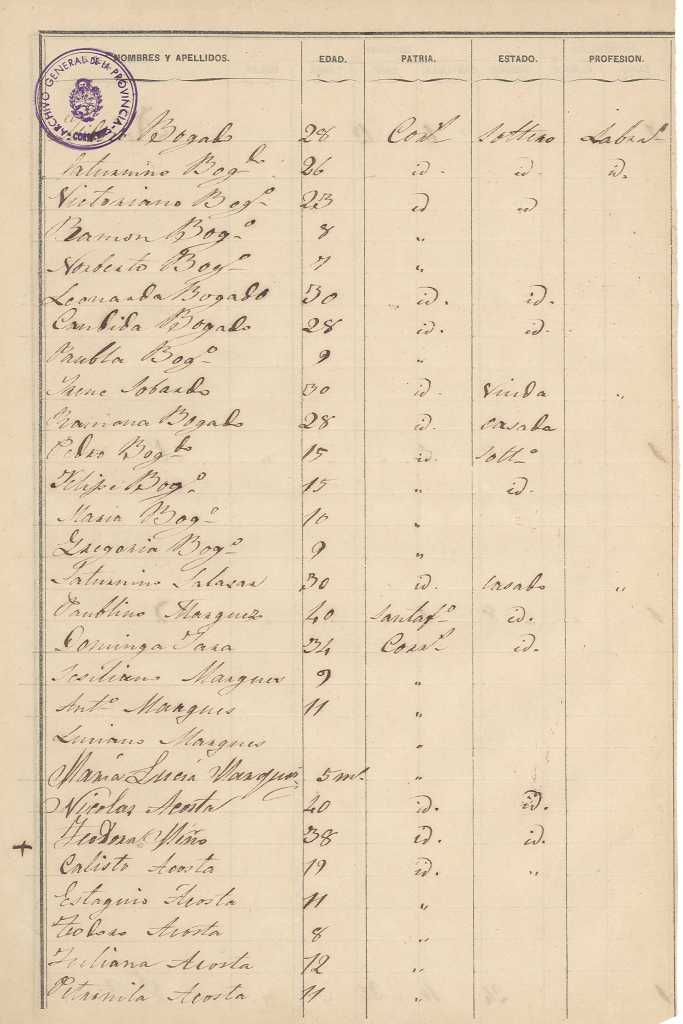 NOMBRES Y APELLIDOS. EDAD. PATRIA. ESTADO. PROFESION.
ARCHIVO GENERAL DE LA PROVINCIA
Bogado 28 Corr.s Soltero Labra.r
Saturnino Bog.do 26 id. id. id.
Victoriano Bog.o 23 id id
Ramon Bog.o 8 "
Norberto Bog.o 7 "
Leonarda Bogado 30 id. id.
Candida Bogado 28 id. id.
Paubla Bog.o 9 "
Irene Lobardo 30 id. Viuda "
Ramona Bogado 28 id. casada
Pedro Bog.do 15 id. Solt.o
Felipe Bog.o 15 " id.
Maria Bog.o 10 "
Gregoria Bog.o 9 "
Saturnino Salazar 30 id. casado "
Paublino Marquez 40 Santaf.o id.
Dominga Jara 34 Corr.s id.
Sesiliano Marques 9 "
Ant.o Marques 11 "
Luciano Marques "
Maria Lucia Marques 5 m.s "
Nicolas Acosta 40 id. id.
+ Teodora Miño 38 id. id.
Calisto Acosta 19 id. "
Estaquio Acosta 11 "
Teodoro Acosta 8 "
Juliana Acosta 12 "
Petronila Acosta 11 "